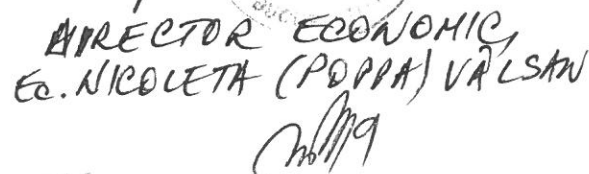 DIRECTOR ECONOMIC,
Ec. NICOLETA (POPPA) VÂLSAN